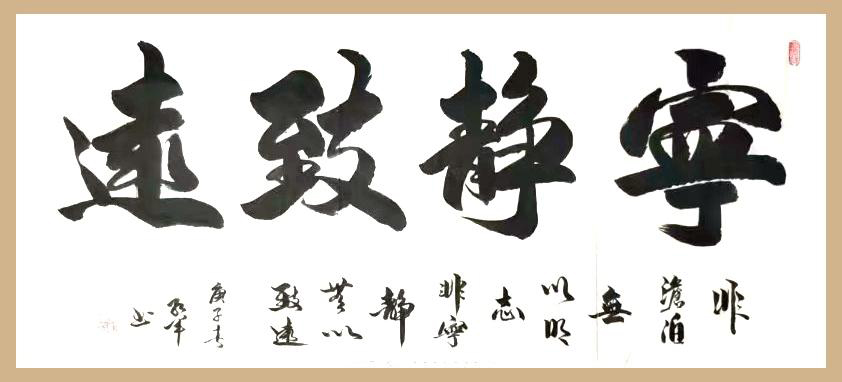 寧静致遠
非
澹泊
無
以明
志
非寧
静
無以
致遠
庚子春
书